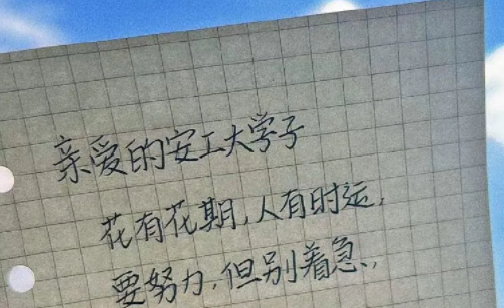 亲爱的安工大学子
花有花期,人有时运,
要努力,但别着急、